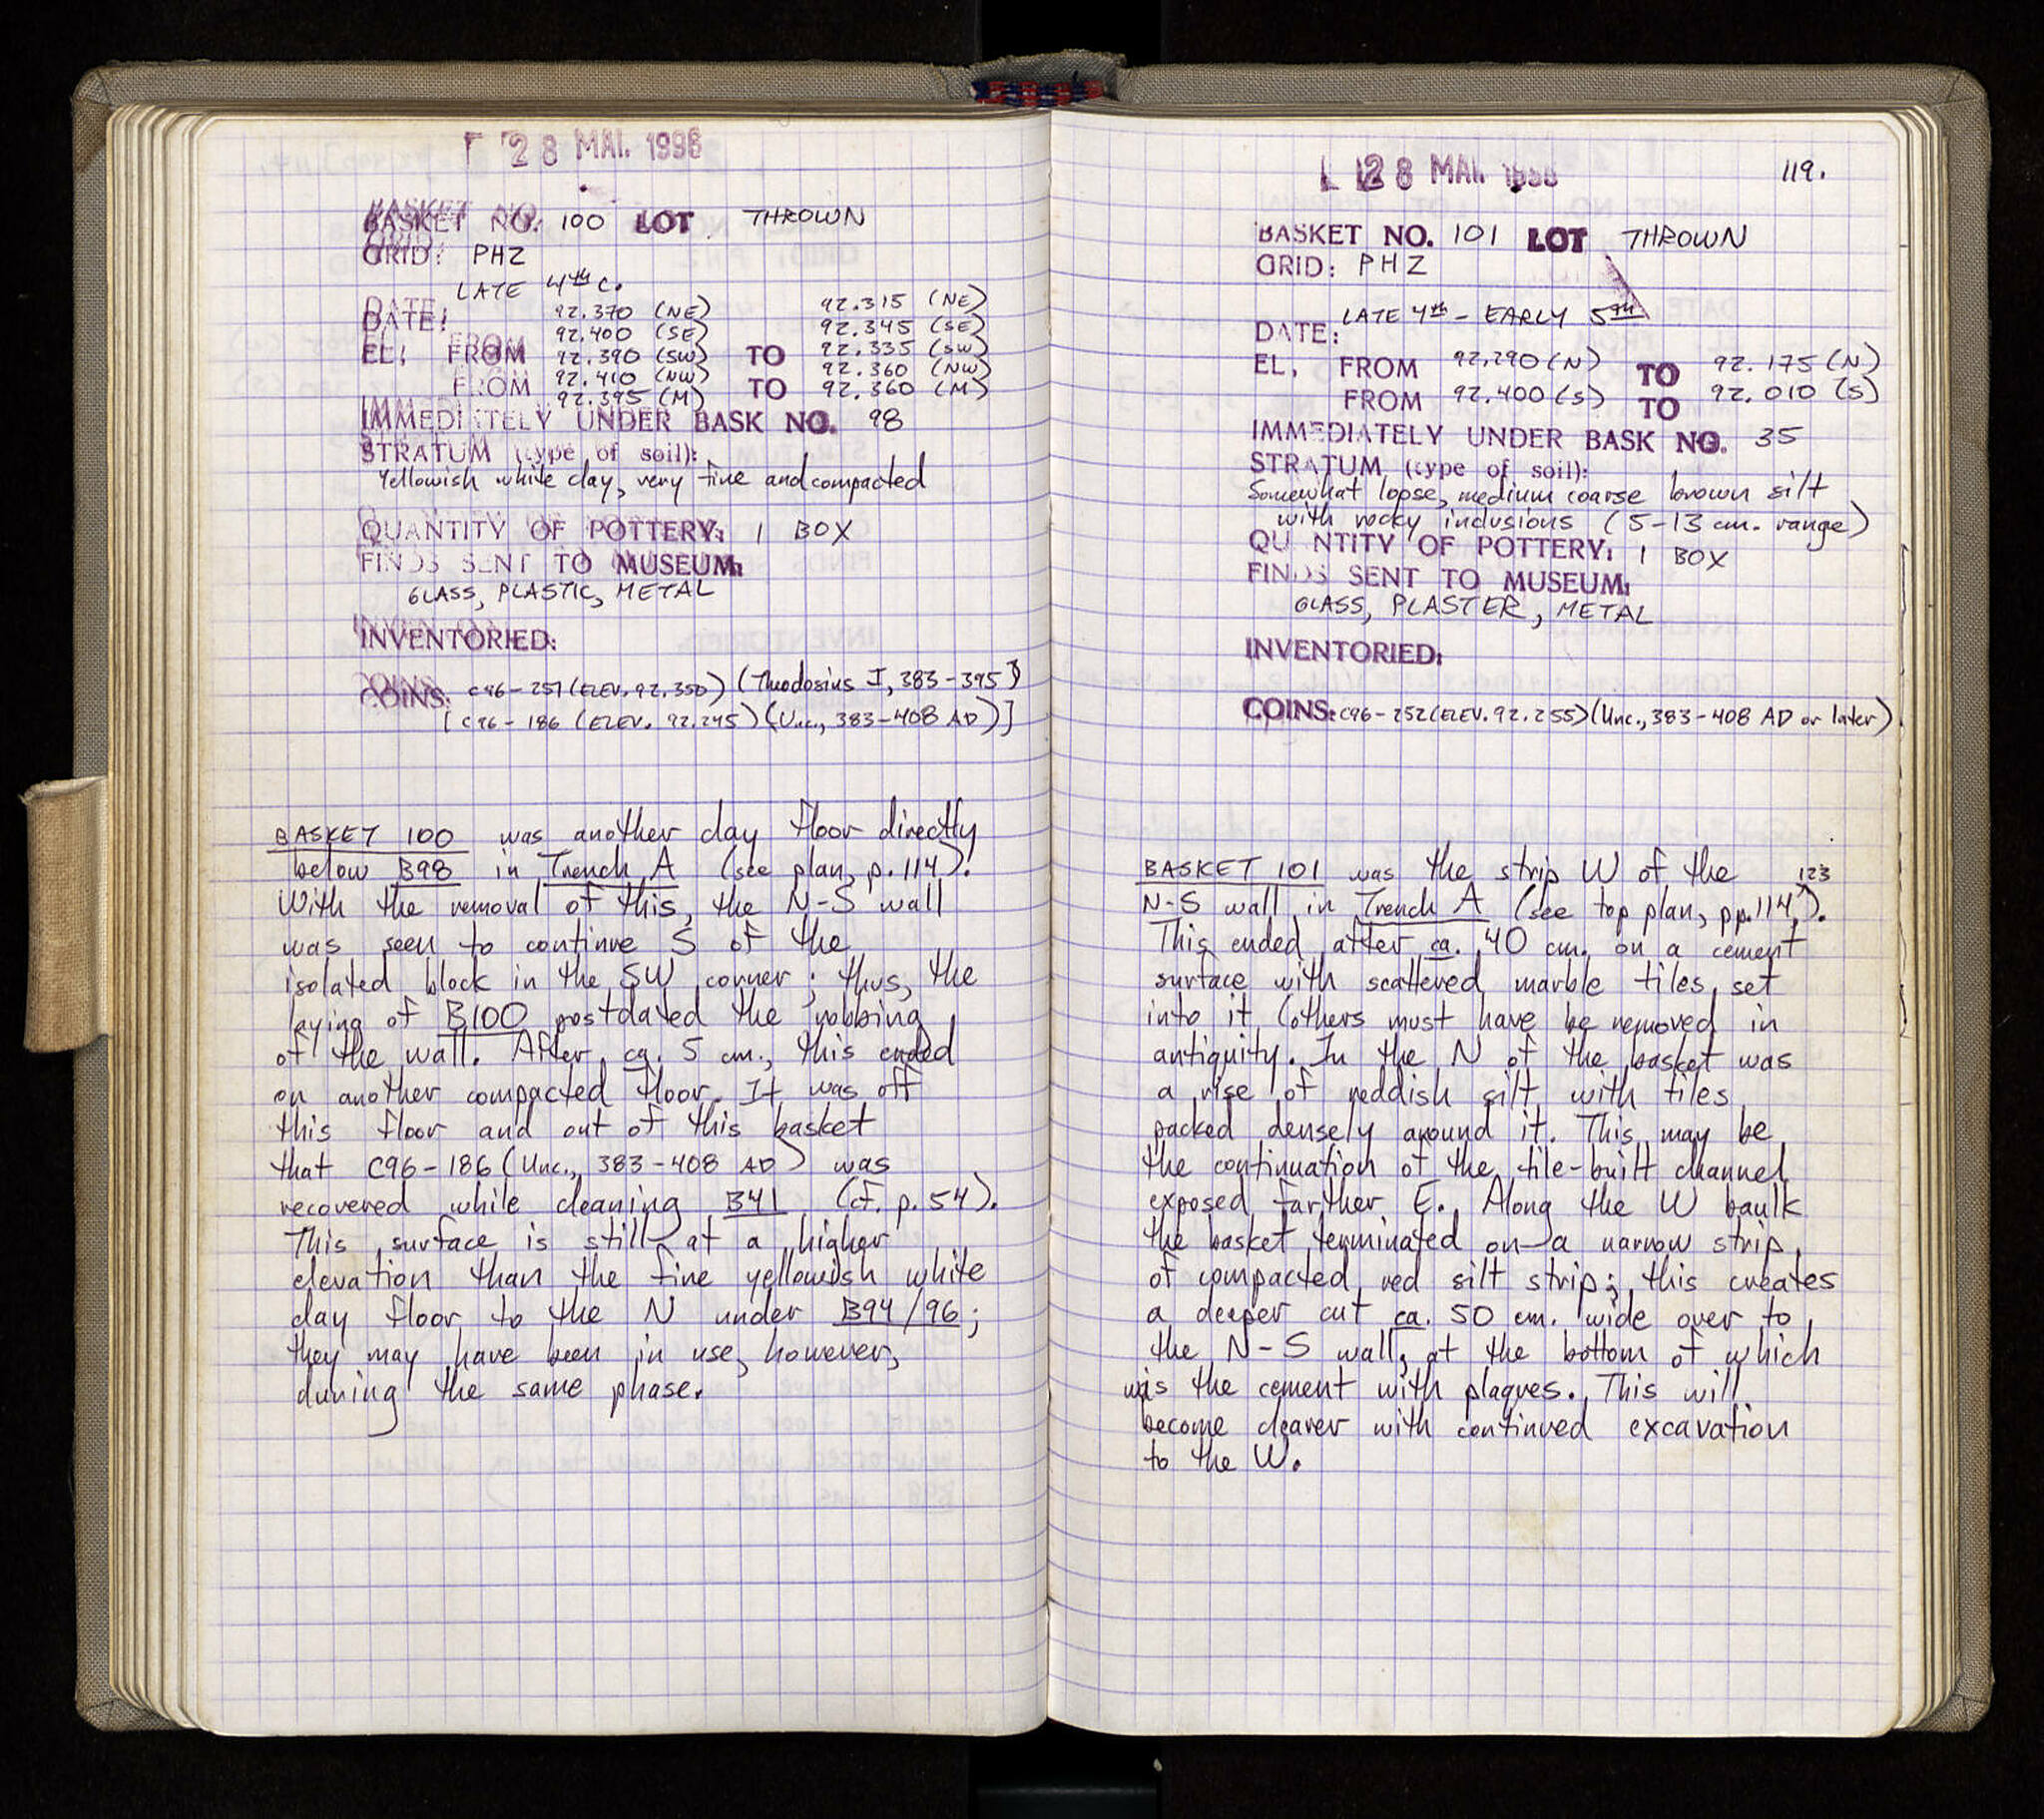 28 MAI. 1996
BASKET NO. 100 LOT THROWN
GRID: PHZ
LATE 4th C.
DATE:
EL, FROM 92.370 (NE) 92.400 (SE) 92.390 (SW) TO 92.315 (NE) 92.345 (SE) 92.335 (SW)
FROM 92.410 (NW) 92.395 (M) TO 92.360 (NW) 92.360 (M)
IMMEDIATELY UNDER BASK NO. 98
STRATUM (type of soil):
Yellowish white clay, very fine and compacted
QUANTITY OF POTTERY: 1 BOX
FINDS SENT TO MUSEUM:
GLASS, PLASTIC, METAL
INVENTORIED:
COINS: C96-251 (ELEV. 92.350) (Theodosius I, 383-395)
[C96-186 (ELEV. 92.245) (Unc., 383-408 AD)]
BASKET 100 was another clay floor directly
below B98 in Trench A (see plan, p. 114).
With the removal of this, the N-S wall
was seen to continue S of the
isolated block in the SW corner; thus, the
laying of B100 postdated the robbing
of the wall. After ca. 5 cm., this ended
on another compacted floor. It was off
this floor and out of this basket
that C96-186 (Unc., 383-408 AD) was
recovered while cleaning B41 (cf. p. 54).
This surface is still at a higher
elevation than the fine yellowish white
clay floor to the N under B94/96;
they may have been in use, however,
during the same phase.
28 MAI. 1996
119.
BASKET NO. 101 LOT THROWN
GRID: PHZ
LATE 4th - EARLY 5th
DATE:
EL, FROM 92.290 (N) TO 92.175 (N)
FROM 92.400 (S) TO 92.010 (S)
IMMEDIATELY UNDER BASK NO. 35
STRATUM (type of soil):
Somewhat loose, medium coarse brown silt
with rocky inclusions (5-13 cm. range)
QU NTITY OF POTTERY: 1 BOX
FINDS SENT TO MUSEUM:
GLASS, PLASTER, METAL
INVENTORIED:
COINS: C96-252 (ELEV. 92.255) (Unc., 383-408 AD or later)
BASKET 101 was the strip W of the
N-S wall in Trench A (see top plan, pp. 114, 123).
This ended after ca. 40 cm. on a cement
surface with scattered marble tiles set
into it (others must have be removed in
antiquity. In the N of the basket was
a rise of reddish silt with tiles
packed densely around it. This may be
the continuation of the tile-built channel
exposed farther E. Along the W baulk
the basket terminated on a narrow strip
of compacted red silt strip; this creates
a deeper cut ca. 50 cm. wide over to
the N-S wall, at the bottom of which
was the cement with plaques. This will
become clearer with continued excavation
to the W.